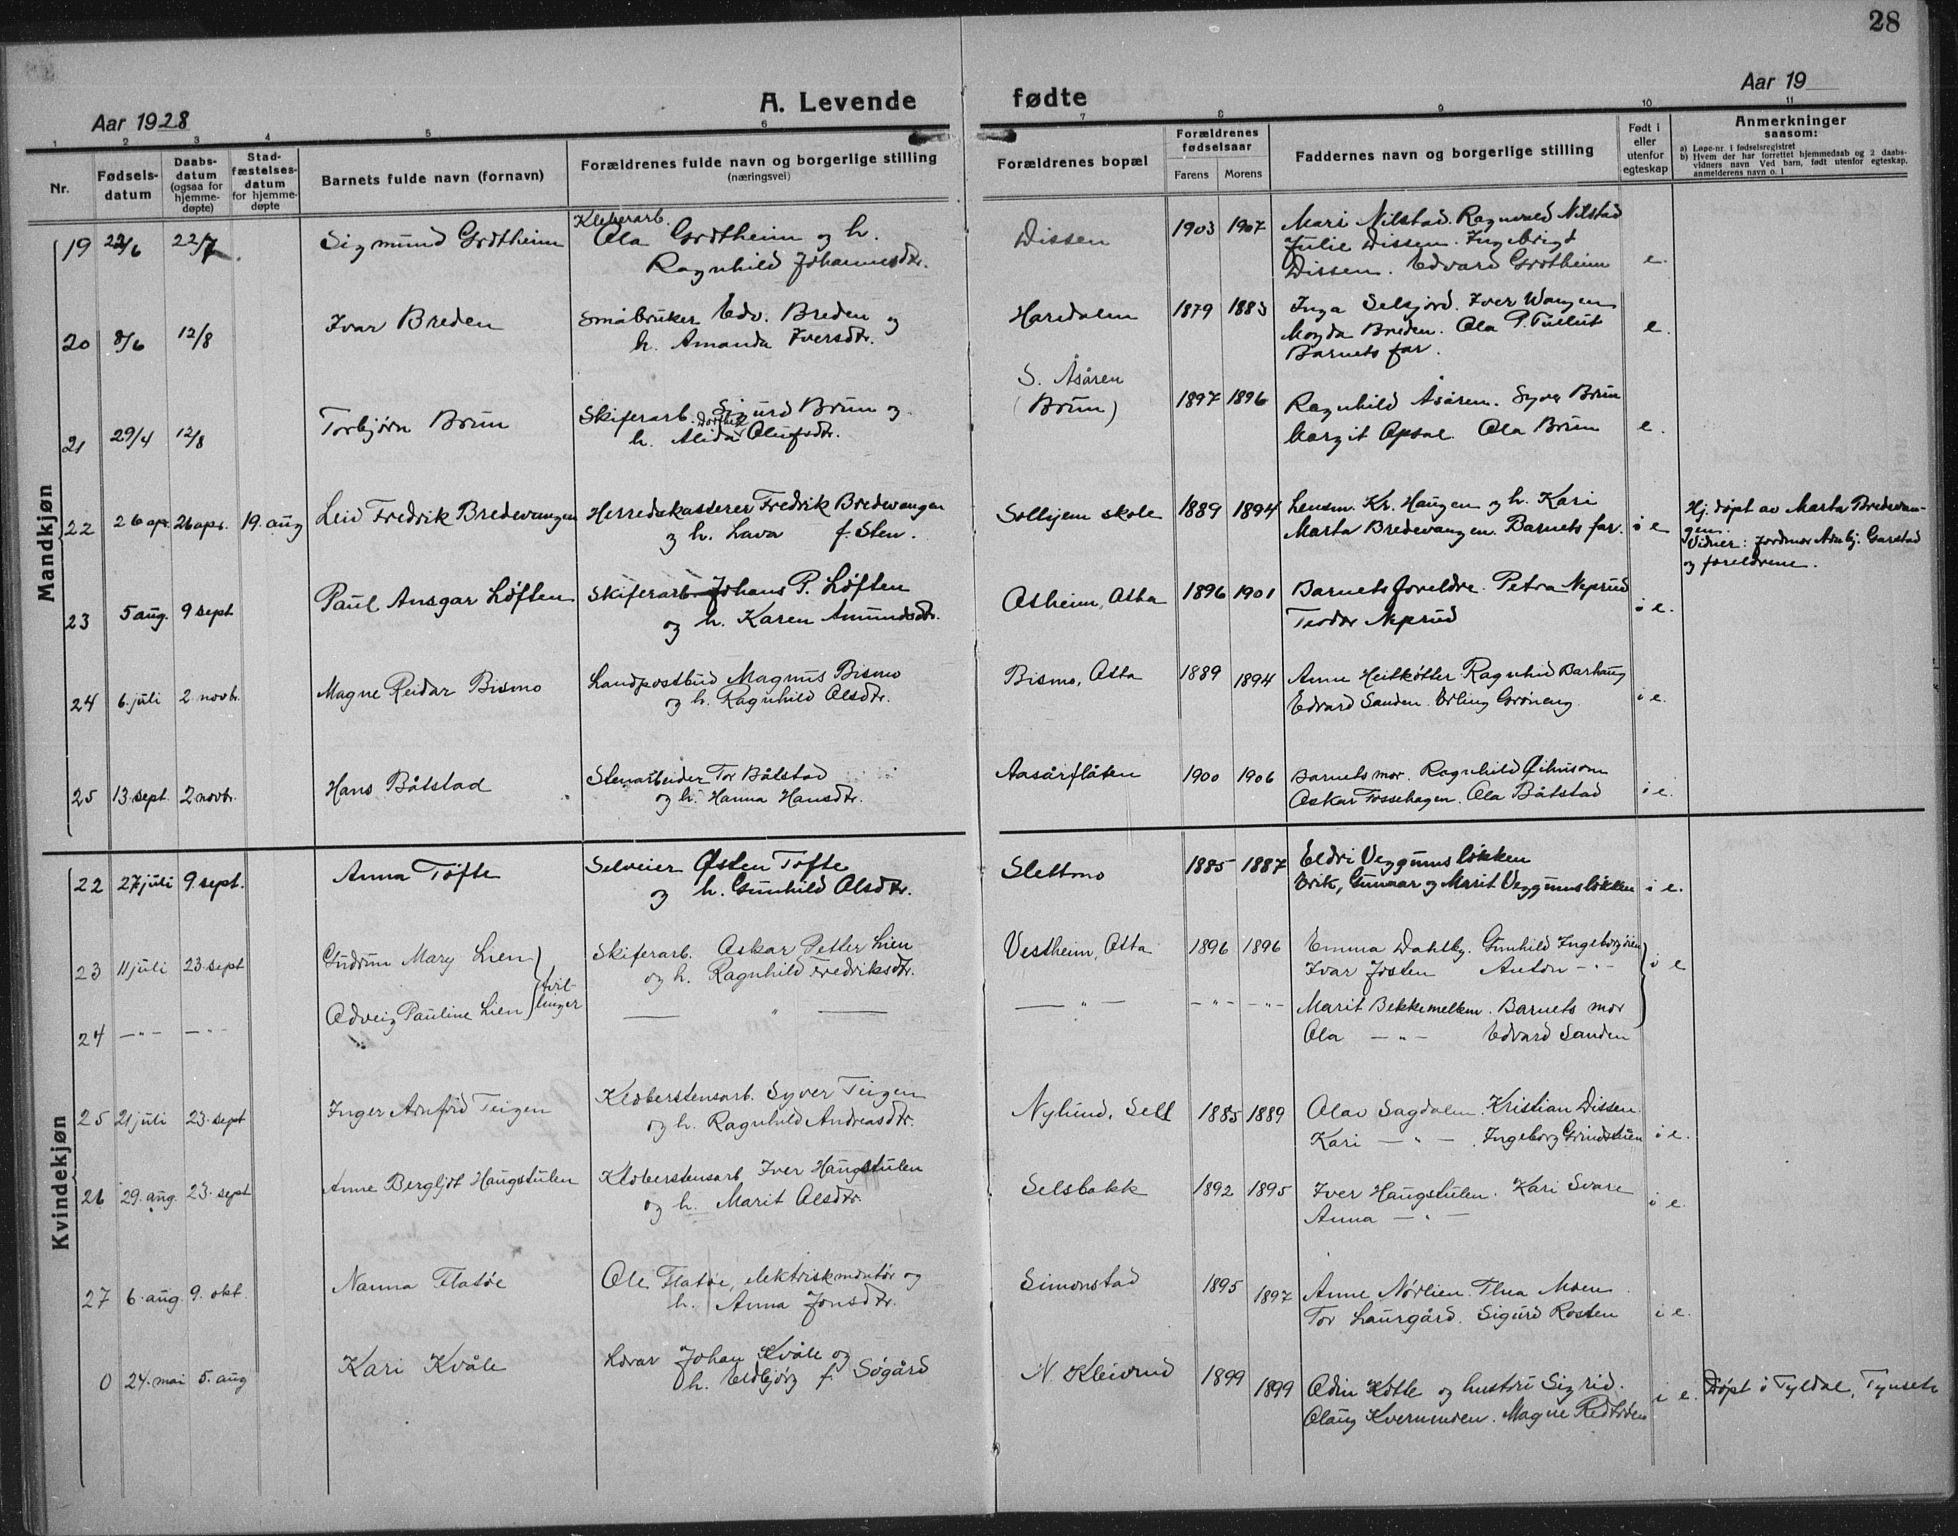 28
Aar 1928
A. Levende fødte
Aar 19
1 2 3 4 5 6 7 8 9 10 11
Nr.
Fødsels-
datum
Daabs-
datum
(ogsaa for
hjemme-
døpte)
Stad-
fæstelses-
datum
for hjemme-
døpte
Barnets fulde navn (fornavn)
Forældrenes fulde navn og borgerlige stilling
(næringsvei)
Forældrenes bopæl
Forældrenes
fødselsaar
Farens Morens
Faddernes navn og borgerlige stilling
Født i
eller
utenfor
egteskap
Anmerkninger
saasom:
a) Løpe-nr. i fødselsregistret
b) Hvem der har forrettet hjemmedaab og 2 daabs-
vidners navn Ved barn, født utenfor egteskap.
anmelderens navn o. l
Mandkjøn
19 22/6 22/7 Sigmund Grøtheim
Kleberarb.
Ola Grøtheim og h.
Ragnhild Johannesdtr.
Dissen 1903 1907
Mari Nilstad. Ragnvald Nilstad
Julie Dissen. Ingebrigt
Dissen. Edvard Grøtheim e.
20 8/6 12/8 Ivar Breden
Småbruker Edv. Breden og
h. Amanda Iversdtr.
Haredalen 1879 1883
Inga Selsjord. Iver Wangen
Magda Breden. Ola P. Tullut e.
Barnets far.
21 29/4 12/8 Torbjørn Brun
Skiferarb. Sigurd Brun og
h. Alida Olufsdtr.
S. Åsåren
(Brun) 1897 1896
Ragnhild Åsåren. Syver Brun
Margit Opsal. Ola Brun e.
22 26 apr. 26 apr. 19. aug Leif Fredrik Bredevangen
Herredskasserer Fredrik Bredevangen
og h. Lava f. Sten.
Solhjem skole 1889 1894
Lensm. Kr. Haugen og h. Kari
Marta Bredevangen. Barnets far. i e
Hj. døpt av Marta Bredevan-
gen.
Vidner: Jordmor Garstad
og foreldrene.
23 5 aug. 9 sept Paul Ansgar Løften
Skiferarb. Johans P. Løften
og h. Karen Amundsdtr.
Åsheim, Otta 1896 1901
Barnets foreldre. Petra Neprud
Teodor Neprud i e.
24 6. juli 2 novbr. Magne Reidar Bismo
Landpostbud Magnus Bismo
og h. Ragnhild Olsdtr.
Bismo, Otta 1889 1894
Anne Heitkøtter. Ragnhild Barhaug
Edvard Sanden. Erling Grøneng. i e.
25 13. sept. 2 novbr. Hans Båtstad
Stenarbeider Tor Båtstad
og h. Hanna Hansdtr.
Aasårflåten 1900 1906
Barnets mor. Ragnhild Øihusom
Oskar Fossehagen. Ola Båtstad i e.
Kvindekjøn
22 27 juli 9. sept. Anna Tøfte
Selveier Østen Tøfte
og h. Gunhild Olsdtr.
Slettmo 1885 1887
Eldri Veggumsløkken
Erik, Gunnar og Marit Veggumsløkken i e.
23 11 juli 23. sept Gudrun Mary Lien
tvil-
linger
Skiferarb. Oskar Petter Lien
og h. Ragnhild Fredriksdtr.
Vestheim, Otta 1896 1896
Emma Dahlby. Gunhild Ingeborgsien
Ivar Josten Anton — " — i e
24 — " — — " — Odveig Pauline Lien
— " —
— " — — " — — " —
Marit Bekkemellem. Barnets mor
Ola — " — Edvard Sanden
25 21 juli 23. sept Inger Arnfrid Teigen
Kleberstensarb. Syver Teigen
og h. Ragnhild Andreasdtr.
Nylund, Sell 1885 1889
Olav Sagdalen. Kristian Dissen.
Kari — " — . Ingeborg Grindstuen i e.
26 29. aug. 23. sept Anne Bergljot Haugstulen
Kleberstensarb Iver Haugstulen
og h. Marit Olsdtr.
Selsbakk 1892 1895
Iver Haugstulen. Kari Svare
Anna — " — i e.
27 6. aug. 9. okt Nanna Flatøe
Ole Flatøe, elektriskmontør og
h. Anna Jonsdtr.
Simonstad 1895 1897
Anne Nørlien. Thea Moen.
Tor Laurgård. Sigurd Rosten i e.
0 24. mai 5. aug Kari Kvåle
Lærar Johan Kvåle og
h. Eldbjørg f. Søgård
N. Kleivrud 1899 1899
Odin Kotte og hustru Sigrid.
Olaug Kvernmoen. Magne i e.
Døpt i Tyldal, Tynset